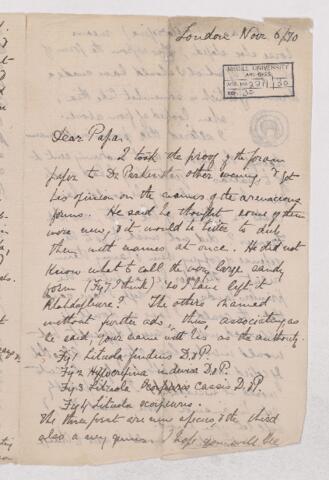 London Nov 6/70
McGILL UNIVERSITY
ARCHIVES
ACC. NO.
REF.
Dear Papa
I took the proof of the foram
paper to Dr Parker the other evening, & got
his opinion on the names of the arenaceous
forms. He said he thought some of them
were new, & it would be better to dub
them with names at once. He did not
know what to call the very large sandy
form (Fig 7 I think) so I have left it
The others he named
without further ado, thus, associating as
he said, your name with his as the authority.
Fig 1 Lituola findens D & P.
Fig 2 D & P.
Fig 3 Lituola cassis D. & P.
Fig 4 Lituola scorpiurus.
The three first are new species, & the third
also a very I hope you will like